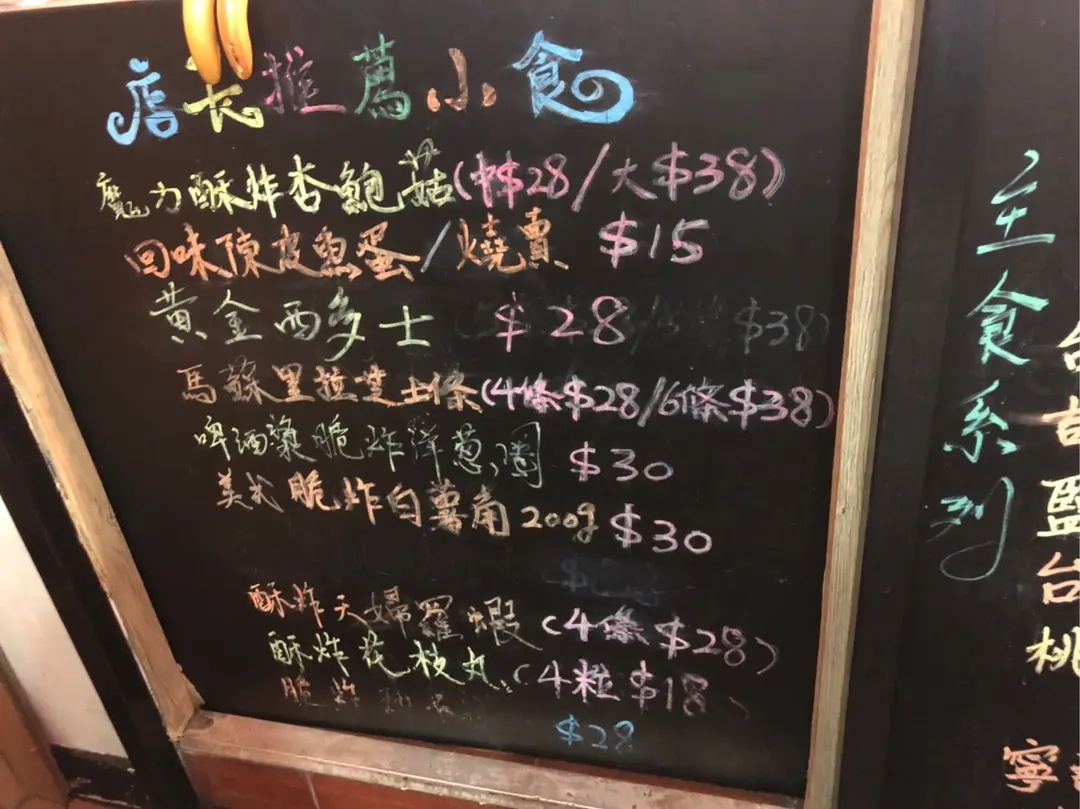 店長推薦小食
魔力酥炸杏鮑菇(中$28/大$38)
回味陳皮魚蛋/燒賣 $15
黃金西多士 $28 $38
馬蘇里拉芝士條(4條$28/6條$38)
啤酒漿脆炸洋蔥圈 $30
美式脆炸白薯角200g $30
酥炸天婦羅蝦(4條$28)
酥炸花枝丸(4粒$18
脆炸
$28
主食系列
台
胡
鹽
台
桃
寧